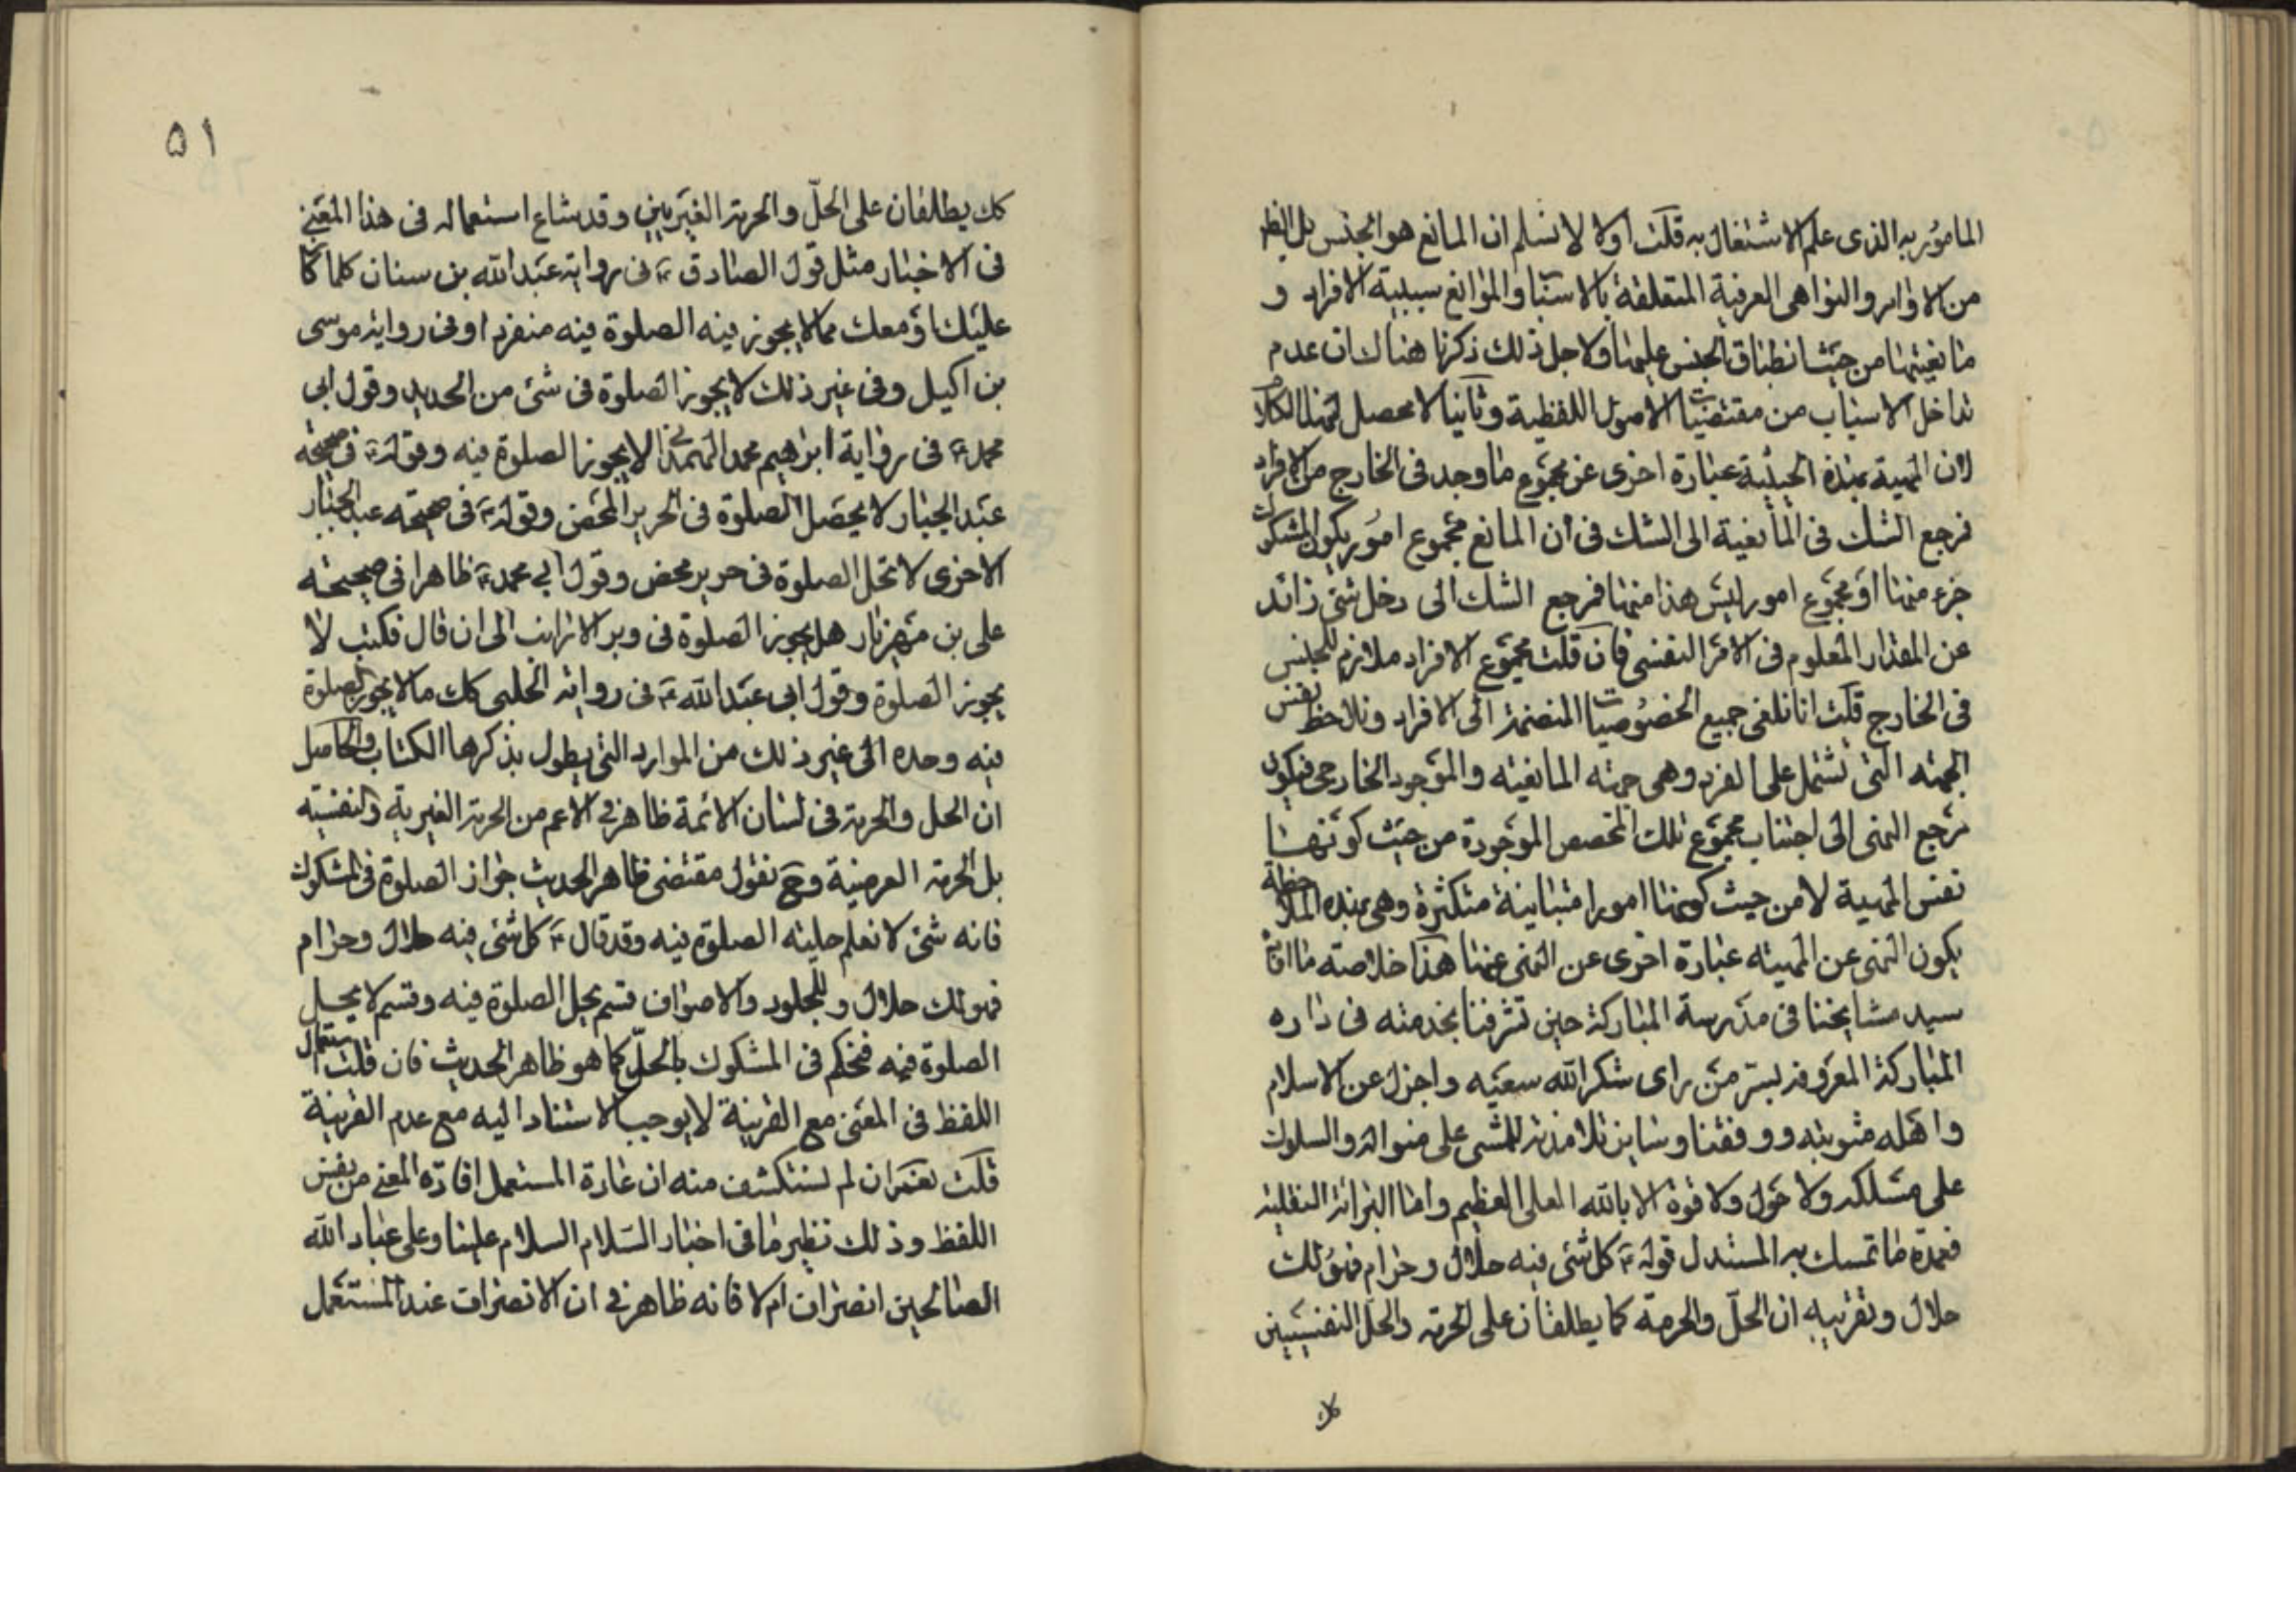 المامور به الذى علم الاشتغال به قلت اولا لا نسلم ان المانع هو الجنس بل الظ
من الاوامر والنواهى العرفية المتعلقة بالاسباب والموانع سببية الافراد و
مانعيتها من حيث انطباق الجنس عليها ولاجل ذلك ذكرنا هناك ان عدم
تداخل الاسباب من مقتضيات الاصول اللفظية وثانيا لا محصل لهذا الكلام
لان المهية بهذه الحيثية عبارة اخرى عن مجموع ما وجد فى الخارج من الافراد
فرجع الشك فى المانعية الى الشك فى ان المانع مجموع امور يكون المشكوك
جزء منها او مجموع امور ليس هذا منها فرجع الشك الى دخل شئ زائد
عن المقدار المعلوم فى الامر النفسى فان قلت مجموع الافراد ملازم للجنس
فى الخارج قلت انا نلغى جميع الخصوصيات المنضمة الى الافراد ونلاحظ نفس
الجهته التى تشتمل على الفرد وهى جهته المانعيته والموجود الخارجى فيكون
مرجع النهى الى اجتناب مجموع تلك الحصص الموجودة من حيث كونها
نفس المهية لا من حيث كونها امورا متباينة متكثرة وهى بهذه الملاحظة
يكون النهى عن المهيته عبارة اخرى عن النهى عنها هذا خلاصته ما افاده
سيد مشايخنا فى مدرسة المباركة حين تشرفنا بخدمته فى داره
المباركة المعروفة بسر من راى شكر الله سعيه واجزل عن الاسلام
واهله مثوبته ووفقنا وساير تلامذته للمشى على منواله والسلوك
على مسلكه ولا حول ولا قوة الا بالله العلى العظيم واما البرائة النقلية
فعمدة ما تمسك به المستدل قوله ع كل شئ فيه حلال وحرام فهو لك
حلال وتقريبه ان الحلّ والحرمة كما يطلقان على الحرمة والحل النفسيين
كك
٥١
كك يطلقان على الحلّ والحرمة الغيريين وقد شاع استعماله فى هذا المعنى
فى الاخبار مثل قول الصادق ع فى رواية عبد الله بن سنان كلما كان
عليك او معك مما لا يجوز فيه الصلوة فيه منفردا وفى رواية موسى
بن اكيل وفى غير ذلك لا يجوز الصلوة فى شئ من الحديد وقول ابى
محمد ع فى رواية ابرهيم محمد الهمدانى لا يجوز الصلوة فيه وقوله ع فى صحيحة
عبد الجبار لا يحصل الصلوة فى الحرير المحض وقوله ع فى صحيحته عبد الجبار
الاخرى لا تحل الصلوة فى حرير محض وقول ابى محمد ع ظاهرا فى صحيحته
على بن مهزيار هل يجوز الصلوة فى وبر الارانب الى ان قال فكتب لا
يجوز الصلوة وقول ابى عبد الله ع فى رواية الحلبى كك ما لا يجوز الصلوة
فيه وحده الى غير ذلك من الموارد التى يطول بذكرها الكتاب والحاصل
ان الحل والحرمة فى لسان الائمة ظاهر فى الاعم من الحرمة الغيرية والنفسيته
بل الحرمة العرضية وح نقول مقتضى ظاهر الحديث جواز الصلوة فى المشكوك
فانه شئ لا نعلم حليته الصلوة فيه وقد قال ع كل شئ فيه حلال وحرام
فهو لك حلال وللجلود والاصواف قسم يحل الصلوة فيه وقسم لا يحل
الصلوة فيه فنحكم فى المشكوك بالحلّ كما هو ظاهر الحديث فان قلت استعمال
اللفظ فى المعنى مع القرينة لا يوجب الاستناد اليه مع عدم القرينة
قلت نعم ان لم نستكشف منه ان عادة المستعمل افادة المعنى من نفس
اللفظ وذلك نظير ما فى اخبار السلام السلام علينا وعلى عباد الله
الصالحين انصراف ام لا فانه ظاهر فى ان الانصراف عند المستعمل